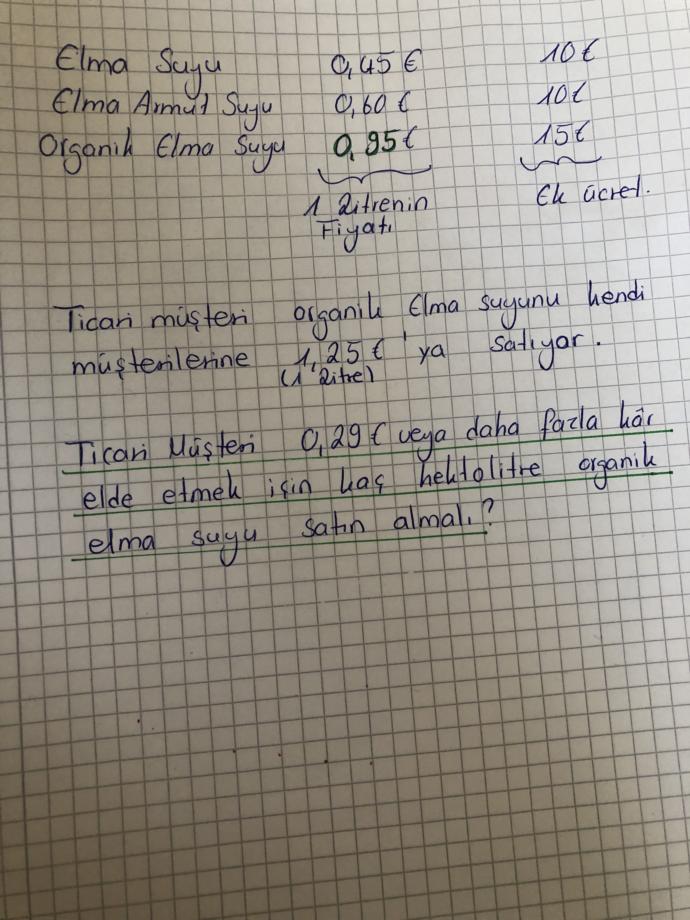 Elma Suyu 0,45 € 10 €
Elma Armut Suyu 0,60 € 10 €
Organik Elma Suyu 0,95 € 15 €
1 Litrenin Ek ücret.
Fiyatı
Ticari müşteri organik Elma suyunu kendi
müşterilerine 1,25 € 'ya satıyor.
(1 Litre)
Ticari Müşteri 0,29 € veya daha fazla kâr
elde etmek için kaç hektolitre organik
elma suyu satın almalı?